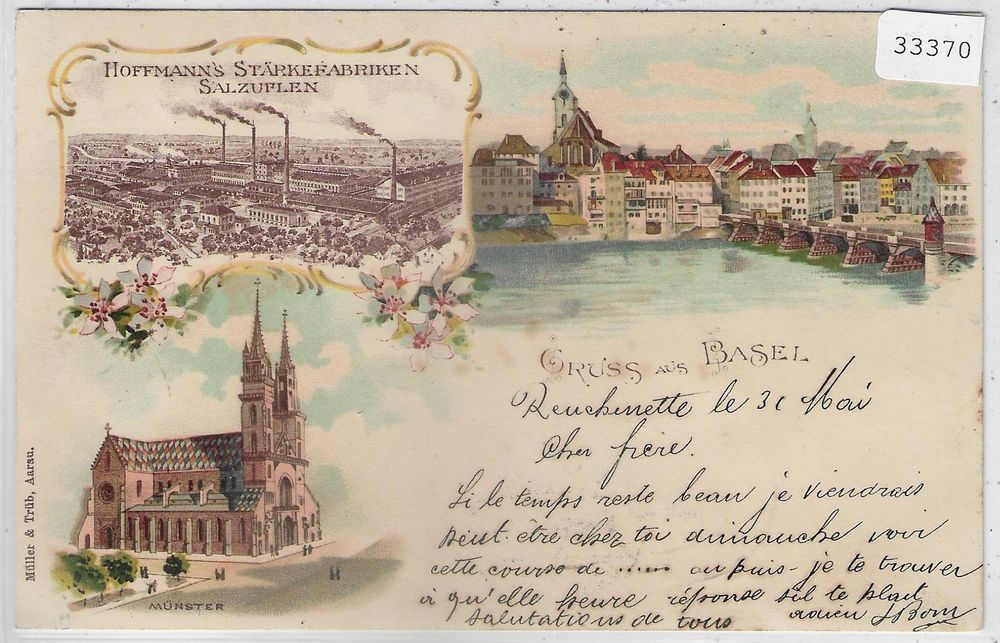 33370
HOFFMANN'S STÄRKEFABRIKEN
SALZUFLEN
GRUSS AUS BASEL
Reuchenette le 31 Mai
Cher frère.
Si le temps reste beau je viendrais
peut-être chez toi dimanche voir
cette course de ...... ou puis-je te trouver
à qu'elle heure réponse sil te plait
Salutations de tous
MÜNSTER
Müller & Trüb, Aarau.